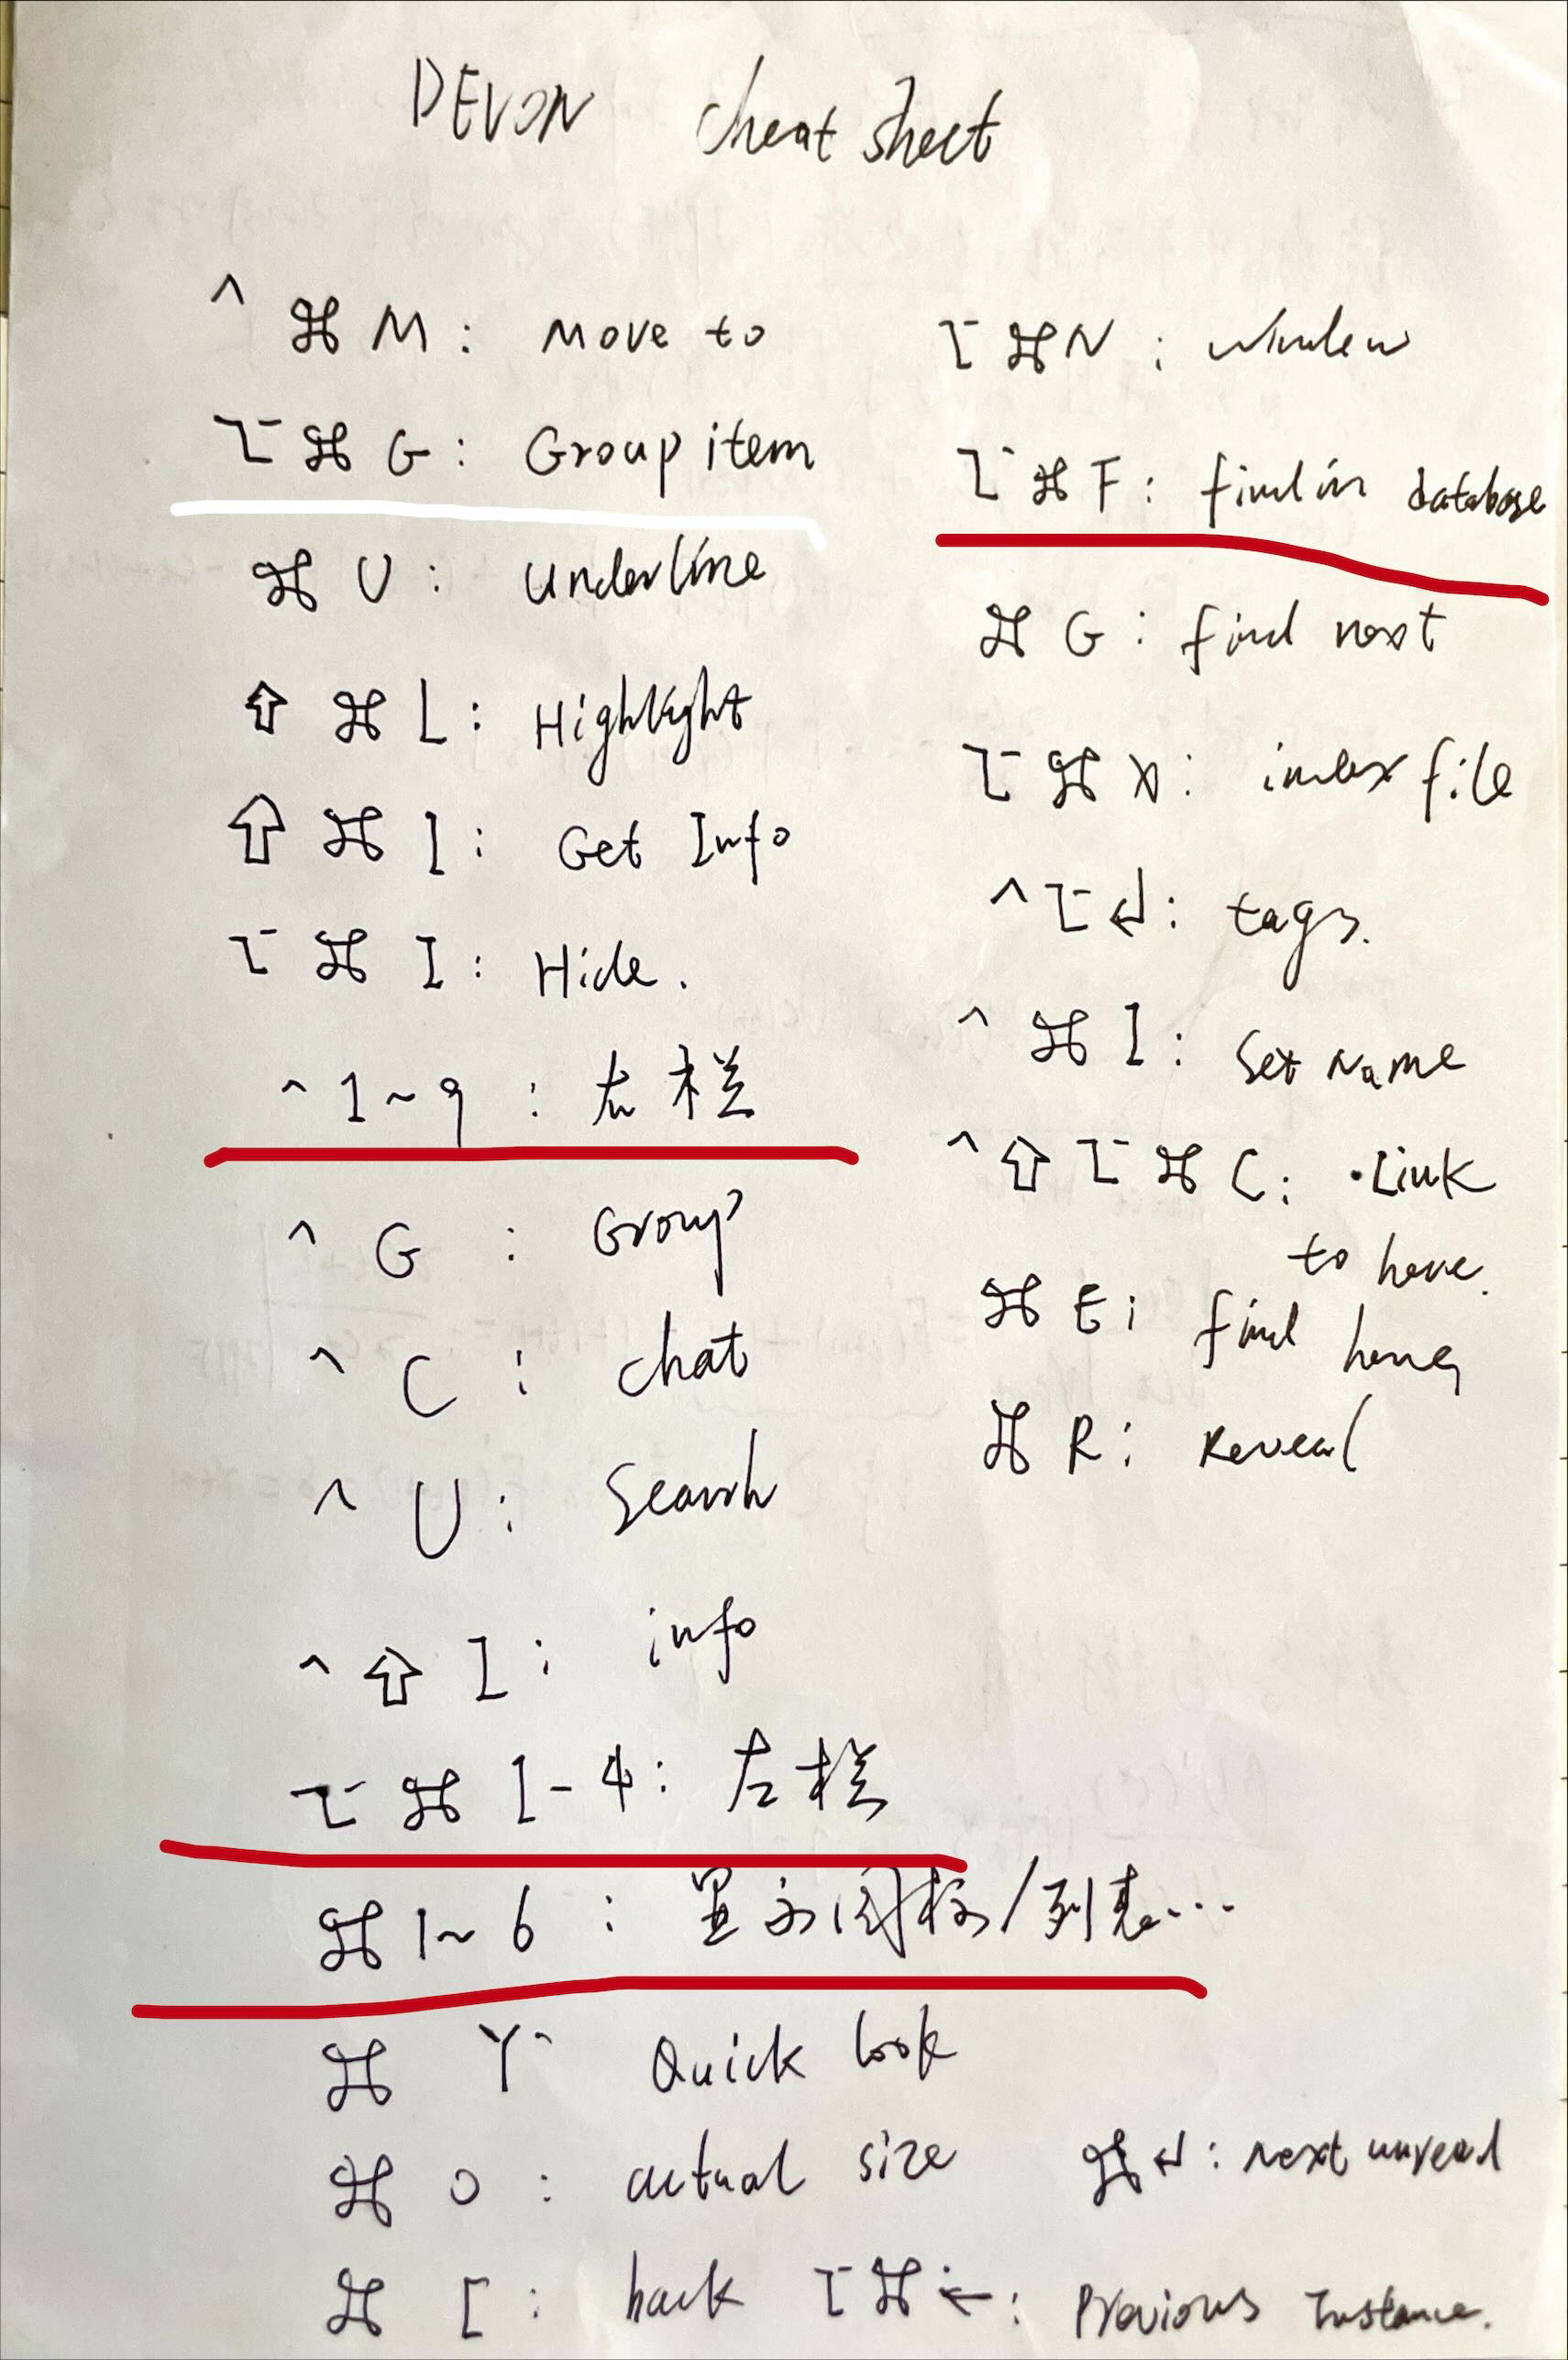 DEVON cheat sheet
^ ⌘ M : Move to
⌥ ⌘ G : Group item
⌘ U : Underline
⇧ ⌘ L : Highlight
⇧ ⌘ I : Get Info
⌥ ⌘ I : Hide.
^ 1~9 : 左栏
^ G : Group
^ C : chat
^ U : Search
^ ⇧ I : info
⌥ ⌘ 1-4 : 左栏
⌘ 1~6 : 显示图标/列表...
⌘ Y Quick look
⌘ 0 : actual size
⌘ [ : back
⌥ ⌘ N : window
⌥ ⌘ F : find in database
⌘ G : find next
⌥ ⌘ X : index file
^ ⌥ ↵ : tags.
^ ⌘ I : Set Name
^ ⇧ ⌥ ⌘ C : Link
to here.
⌘ E : find here
⌘ R : Reveal
⌘ ↵ : next unread
⌥ ⌘ ← : Previous Instance.